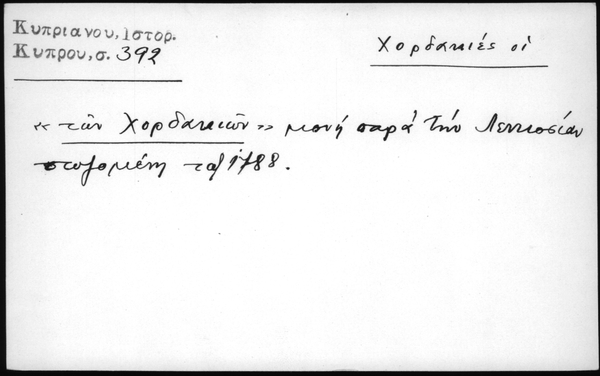 Κυπριανου, Ιστορ.
Κυπρου, σ. 392
Χορδακιές οἱ
«τῶν Χορδακιῶν» μονή παρά τήν Λευκοσίαν
σωζομένη τῷ 1788.